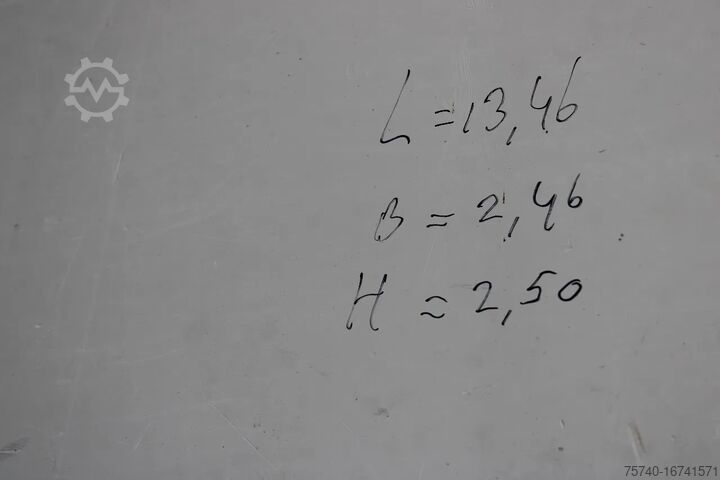 L = 13,46
B = 2,46
H = 2,50
75740-16741571